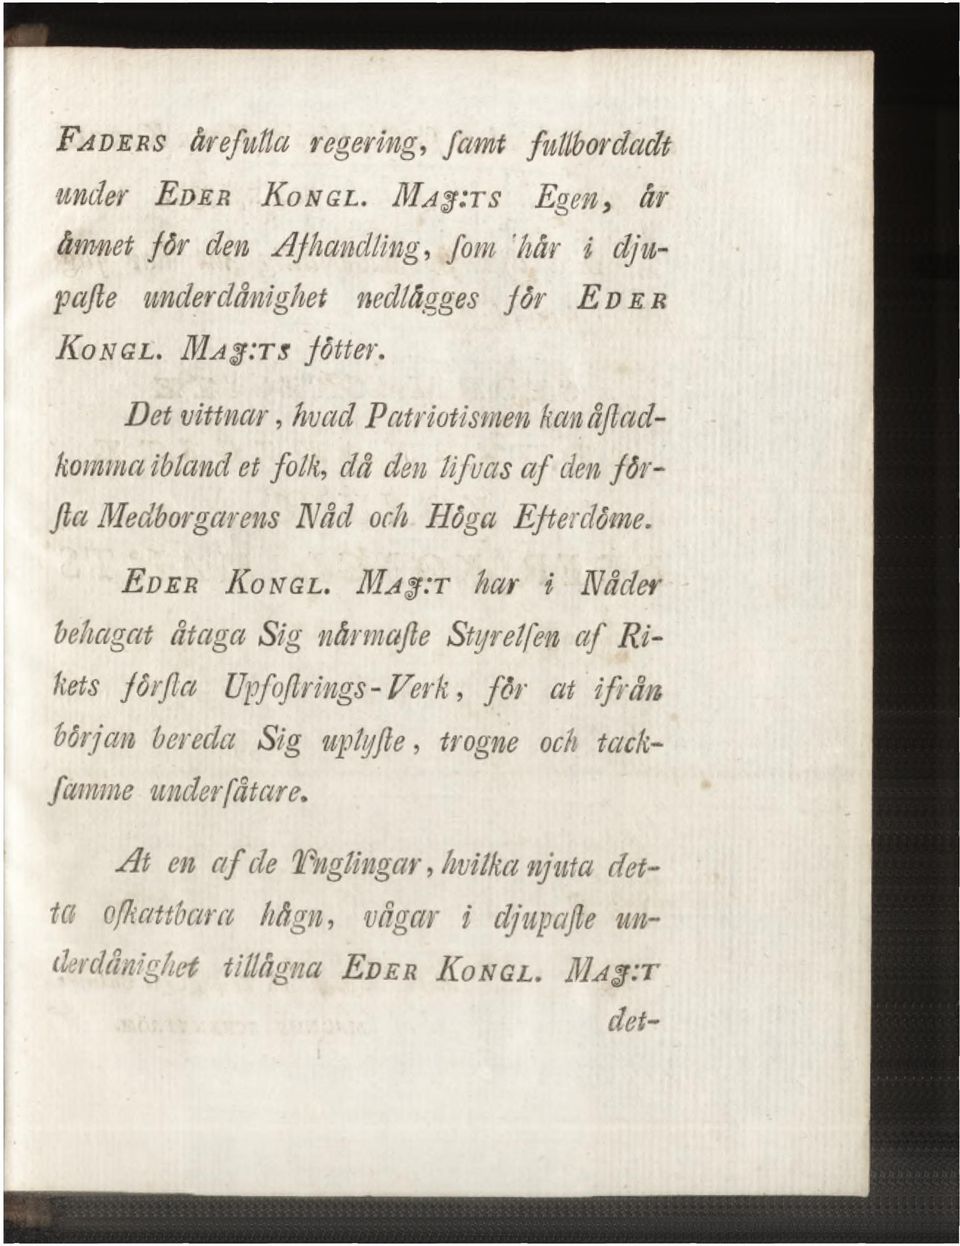 FADERS ärefulla regering, ſamt fullbordadt
under EDER KONGL. MAJ:TS Egen, är
ämnet för den Afhandling, ſom här i dju-
paſte underdånighet nedlägges för EDER
KONGL. MAJ:TS fötter.
Det vittnar, hvad Patriotismen kan åſtad-
komma ibland et folk, då den lifvas af den för-
ſta Medborgarens Nåd och Höga Efterdöme.
EDER KONGL. MAJ:T har i Nåder
behagat åtaga Sig närmaſte Styrelſen af Ri-
kets förſta Upfoſtrings-Verk, för at ifrån
början bereda Sig uplyſte, trogne och tack-
ſamme underſåtare.
At en af de Ynglingar, hvilka njuta det-
ta oſkattbara hägn, vågar i djupaſte un-
derdånighet tillägna EDER KONGL. MAJ:T
det-